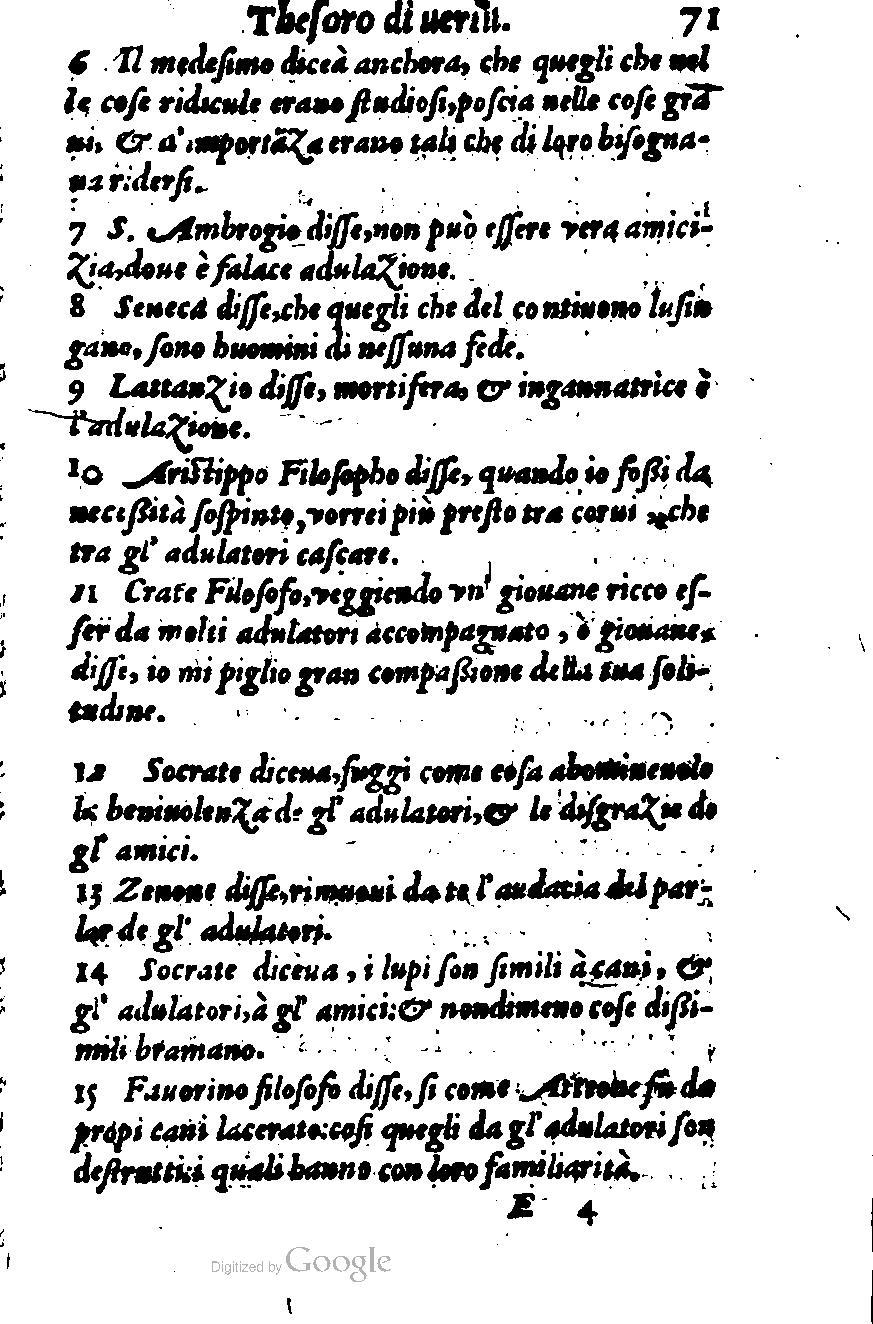 Thesoro di uertù. 71
6 Il medesimo diceà anchora, che quegli che nel
le cose ridicule erano studiosi, poscia nelle cose gra
ui, & d'importāza erano tali che di loro bisogna-
ua ridersi.
7 S. Ambrogio disse, non può essere vera amici-
zia, doue è falace adulazione.
8 Seneca disse, che quegli che del continuono lusin
gano, sono huomini di nessuna fede.
9 Lattanzio disse, mortifera, & ingannatrice è
l'adulazione.
10 Aristippo Filosopho disse, quando io fossi da
necessità sospinto, vorrei più presto tra corui, che
tra gl' adulatori cascare.
11 Crate Filosofo, veggiendo vn' giouane ricco es-
ser da molti adulatori accompagnato, ò giouane,
disse, io mi piglio gran compassione della tua soli-
tudine.
12 Socrate diceua, fuggi come cosa abomineuole
la beniuolenza de gl' adulatori, & le disgrazie de
gl' amici.
13 Zenone disse, rimuoui da te l'audacia del par-
lar de gl' adulatori.
14 Socrate diceua, i lupi son simili à cani, &
gl' adulatori, à gl' amici: & nondimeno cose dissi-
mili bramano.
15 Fauorino filosofo disse, si come Atteone fu da
propi cani lacerato: cosi quegli da gl' adulatori son
destrutti: i quali hanno con loro familiarità.
E 4
Digitized by Google